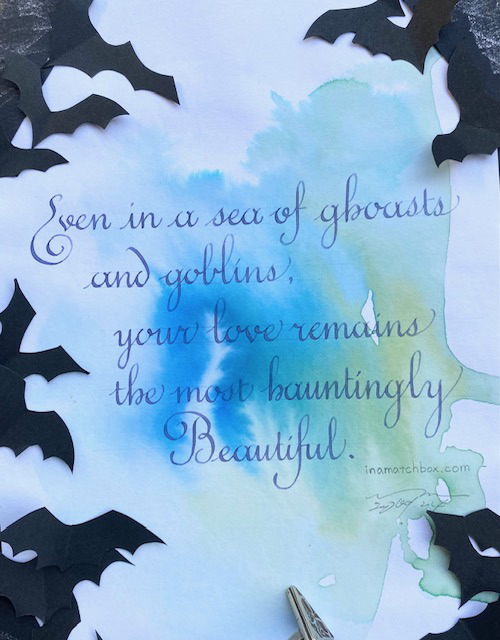 Even in a sea of ghoasts
and goblins,
your love remains
the most hauntingly
Beautiful.
inamatchbox.com